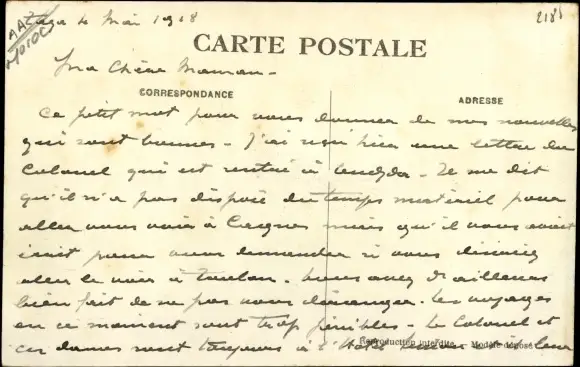 Taza le Mai 1918
2185
AAZ
MOROC
CARTE POSTALE
Ma Chère Maman -
CORRESPONDANCE
ADRESSE
Ce petit mot pour vous donner de mes nouvelles
qui sont bonnes - J'ai reçu hier une lettre du
Colonel qui est rentré à - Il me dit
qu'il n'a pas disposé du temps matériel pour
aller vous voir à Cagnes mais qu'il vous avait
écrit pour vous demander si vous
aller le voir à Toulon. Vous avez d'ailleurs
bien fait de ne pas vous déranger. Les voyages
en ce moment sont trop pénibles - Le Colonel et
ces dames sont toujours à l'Hotel à leur
Reproduction interdite Modèle déposé